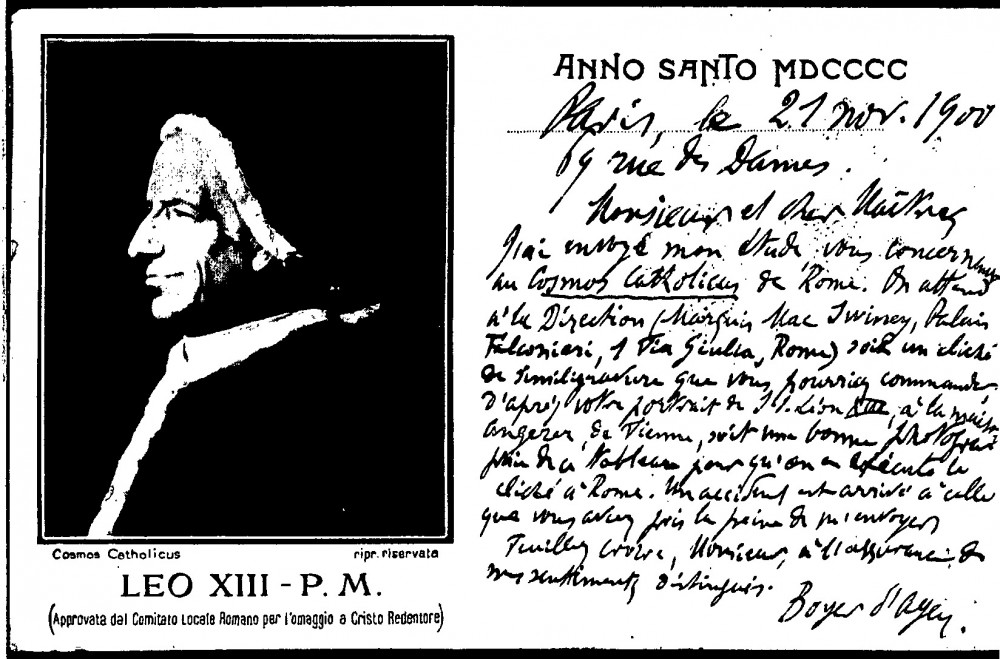 Cosmos Catholicus ripr. riservata
LEO XIII - P. M.
(Approvata dal Comitato Locale Romano per l'omaggio a Cristo Redentore)
ANNO SANTO MDCCCC
Paris, le 21 nov. 1900
69 rue des Dames.
Monsieur et cher Maître,
J'ai envoyé mon étude vous concernant
au Cosmos Catholicus de Rome. On attend
à la Direction (Marquis Mac Swiney, Palais
Falconieri, 1 Via Giulia, Rome) soit un cliché
de similigravure que vous pourriez commander
d'après votre portrait de S.S. Léon XIII, à la maison
Angerer, de Vienne, soit une bonne photographie
prise de ce tableau pour qu'on en exécute le
cliché à Rome. Un accident est arrivé à celle
que vous aviez pris la peine de m'envoyer
Veuillez croire, Monsieur, à l'assurance de
mes sentiments distingués.
Boyer d'Agen.